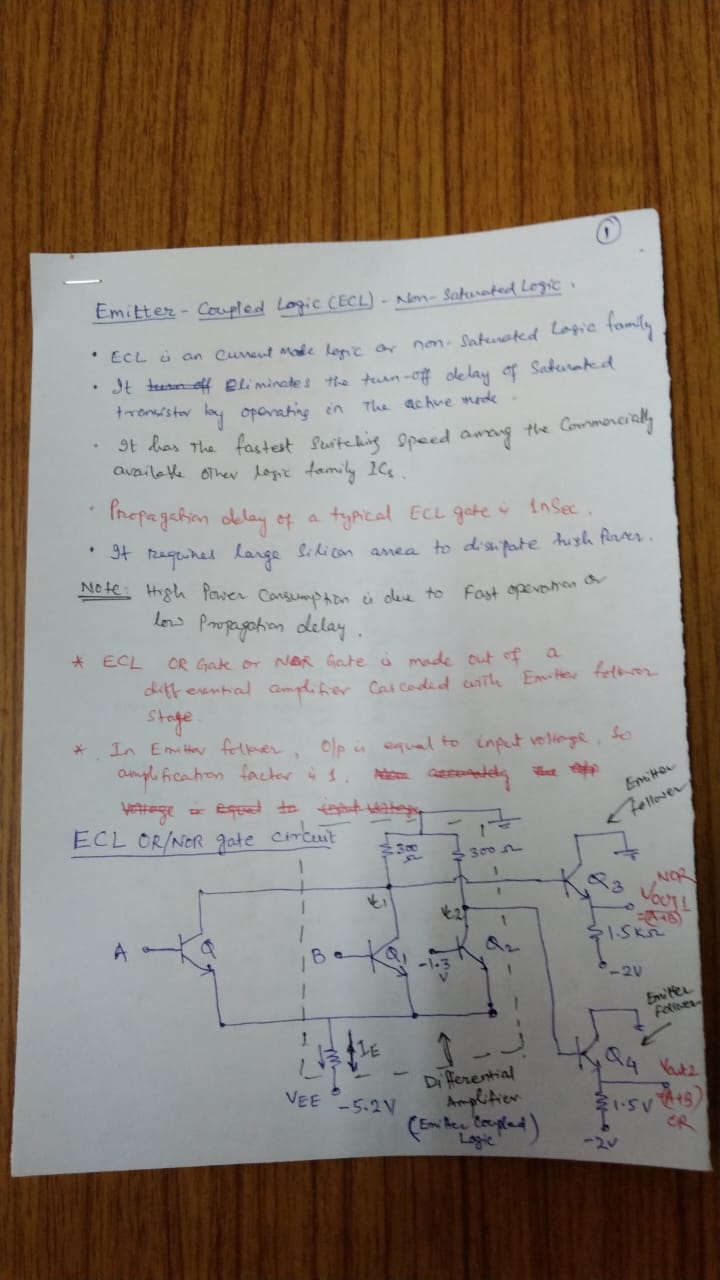 1
Emitter - Coupled Logic (ECL) - Non-Saturated Logic.
• ECL is an Current mode logic or non-Saturated Logic family
• It turn off Eliminates the turn-off delay of Saturated
transistor by operating in The active mode.
• It has The fastest Switching Speed among the Commercially
available other logic family ICs.
• Propagation delay of a typical ECL gate is 1nSec.
• It requires large Silicon area to dissipate high Power.
Note: High Power Consumption is due to Fast operation or
low Propagation delay.
* ECL OR Gate or NOR Gate is made out of a
differential amplifier Cascaded with Emitter follower
Stage.
* In Emitter follower, O/p is equal to input voltage, So
amplification factor is 1.
Voltage is Equal to input voltage
ECL OR/NOR gate circuit
Emitter
follower
300
Ω
300 Ω
Q3
NOR
VOUT1
=(A+B)
VC1
VC2
1.5KΩ
-2V
A
Q
B
Q1
-1.3
V
Q2
Emitter
Follower
IE
VEE
-5.2V
Differential
Amplifier
(Emitter Coupled
Logic)
Q4
Vout2
=(A+B)
OR
1.5V
-2V